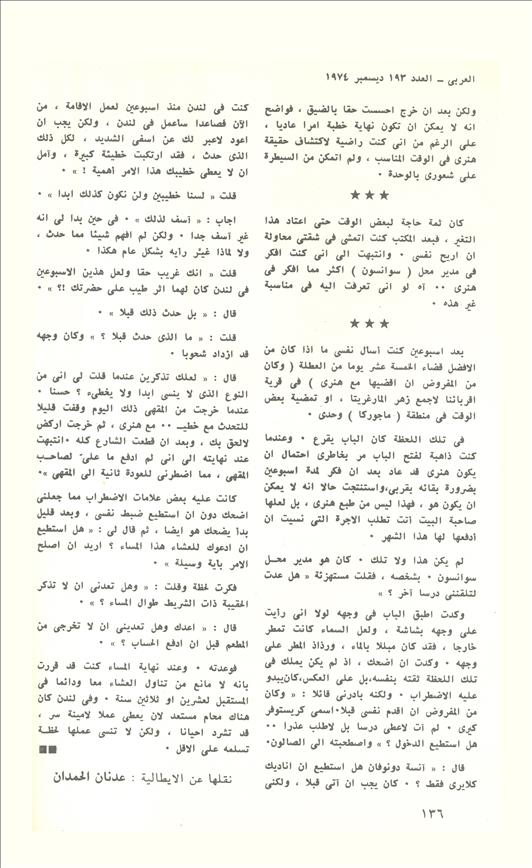 العربى – العدد ١٩٣ ديسمبر ١٩٧٤
ولكن بعد ان خرج احسست حقا بالضيق ، فواضح
انه لا يمكن ان تكون نهاية خطبة امرا عاديا ،
على الرغم من انى كنت راضية لاكتشاف حقيقة
هنرى فى الوقت المناسب ، ولم اتمكن من السيطرة
على شعورى بالوحدة ٠
★ ★ ★
كان ثمة حاجة لبعض الوقت حتى اعتاد هذا
التغير ، فبعد المكتب كنت اتمشى فى شقتى محاولة
ان اريح نفسى ٠ وانتبهت الى انى كنت افكر
فى مدير محل ( سوانسون ) اكثر مما افكر فى
هنرى ٠٠ آه لو انى تعرفت اليه فى مناسبة
غير هذه ٠
★ ★ ★
بعد اسبوعين كنت أسأل نفسى ما اذا كان من
الافضل قضاء الخمسة عشر يوما من العطلة ( وكان
من المفروض ان اقضيها مع هنرى ) فى قرية
اقربائنا لاجمع زهر المارغريتا ، او تمضية بعض
الوقت فى منطقة ( ماجوركا ) وحدى ٠
فى تلك اللحظة كان الباب يقرع ٠ وعندما
كنت ذاهبة لفتح الباب مر بخاطرى احتمال ان
يكون هنرى قد عاد بعد ان فكر لمدة اسبوعين
بضرورة بقائه بقربى،واستنتجت حالا انه لا يمكن
ان يكون هو ، فهذا ليس من طبع هنرى ، بل لعلها
صاحبة البيت أتت تطلب الاجرة التى نسيت ان
أدفعها لها هذا الشهر ٠
لم يكن هذا ولا تلك ٠ كان هو مدير محل
سوانسون ٠ بشخصه ، فقلت مستهزئة « هل عدت
لتلقننى درسا آخر ؟ »
وكدت اطبق الباب فى وجهه لولا انى رأيت
على وجهه بشاشة ، ولعل السماء كانت تمطر
خارجا ، فقد كان مبللا بالماء ، ورذاذ المطر على
وجهه ٠ وكدت ان اضحك ، اذ لم يكن يملك فى
تلك اللحظة ثقته بنفسه،بل على العكس،كان‌يبدو
عليه الاضطراب ٠ ولكنه بادرنى قائلا : « وكان
من المفروض ان اقدم نفسى قبلا٠اسمى كريستوفر
كيرى ٠ لم آت لاعطى درسا بل لاطلب عذرا ٠٠
هل استطيع الدخول ؟ » واصطحبته الى الصالون٠
قال : « آنسة دونوفان هل استطيع ان اناديك
كلايرى فقط ؟ ٠ كان يجب ان آتى قبلا ، ولكنى
كنت فى لندن منذ اسبوعين لعمل الاقامة ، من
الآن فصاعدا سأعمل فى لندن ، ولكن يجب ان
اعود لاعبر لك عن اسفى الشديد ، لكل ذلك
الذى حدث ، فقد ارتكبت خطيئة كبيرة ، وآمل
ان لا يعطى خطيبك هذا الامر أهمية ! » ٠
قلت « لسنا خطيبين ولن نكون كذلك ابدا » ٠
اجاب : « آسف لذلك » ٠ فى حين بدا لى انه
غير آسف جدا ٠ ولكن لم افهم شيئا مما حدث ،
ولا لماذا غيّر رأيه بشكل عام هكذا ٠
قلت « انك غريب حقا ولعل هذين الاسبوعين
فى لندن كان لهما اثر طيب على حضرتك !؟ » ٠
قال : « بل حدث ذلك قبلا » ٠
قلت : « ما الذى حدث قبلا ؟ » وكان وجهه
قد ازداد شحوبا ٠
قال : « لعلك تذكرين عندما قلت لى انى من
النوع الذى لا ينسى ابدا ولا يخطىء ؟ حسنا ٠
عندما خرجت من المقهى ذلك اليوم وقفت قليلا
للتحدث مع خطيب ٠٠ مع هنرى ، ثم خرجت اركض
لالحق بك ، وبعد ان قطعت الشارع كله ٠انتبهت
عند نهايته الى انى لم ادفع ما علىّ لصاحب
المقهى ، مما اضطرنى للعودة ثانية الى المقهى »٠
كانت عليه بعض علامات الاضطراب مما جعلنى
اضحك دون ان استطيع ضبط نفسى ، وبعد قليل
بدأ يضحك هو ايضا ، ثم قال لى : « هل استطيع
ان ادعوك للعشاء هذا المساء ؟ اريد ان اصلح
الامر بأية وسيلة » ٠
فكرت لحظة وقلت : « وهل تعدنى ان لا تذكر
الحقيبة ذات الشريط طوال المساء ؟ » ٠
قال : « اعدك وهل تعدينى ان لا تخرجى من
المطعم قبل ان ادفع الحساب ؟ » ٠
فوعدته ٠ وعند نهاية المساء كنت قد قررت
بانه لا مانع من تناول العشاء معا ودائما فى
المستقبل لعشرين او ثلاثين سنة ٠ وفى لندن كان
هناك محام مستعد لان يعطى عملا لامينة سر ،
قد تشرد احيانا ، ولكن لا تنسى عملها لحظة
تسلمه على الاقل ٠
نقلها عن الايطالية : عدنان الحمدان
١٣٦